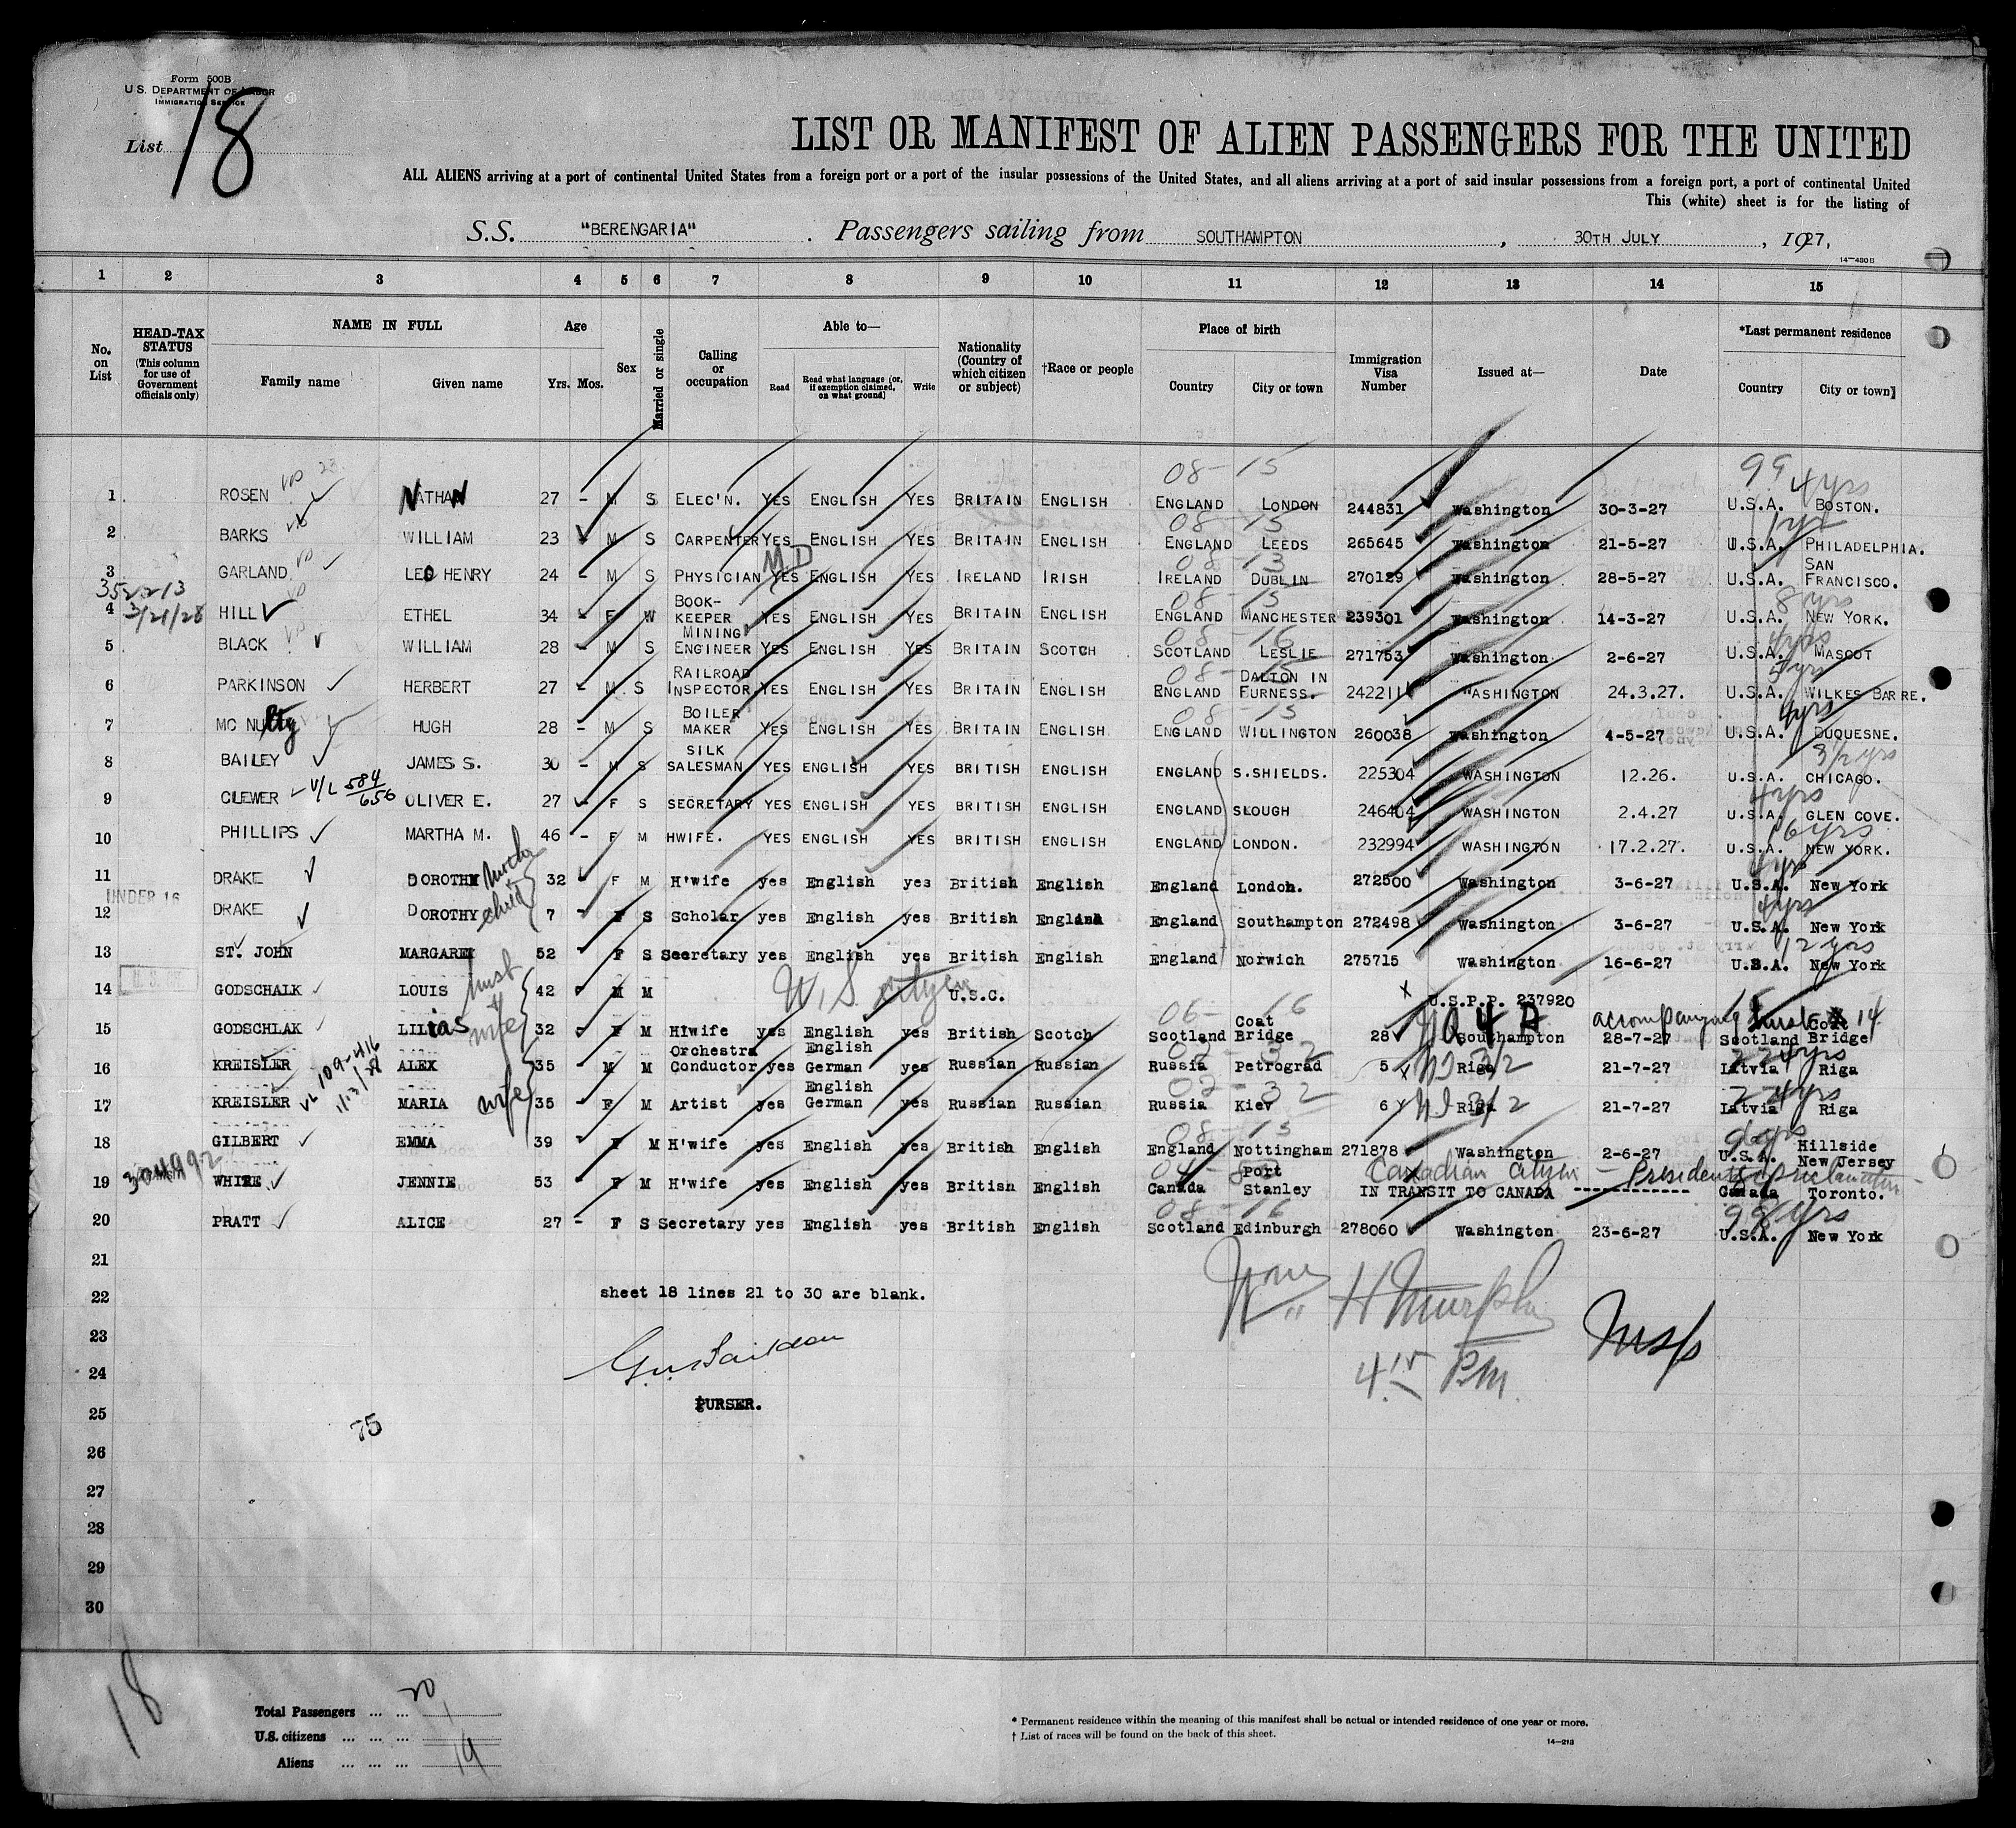 Form 500B
U.S. DEPARTMENT OF LABOR
IMMIGRATION SERVICE
List 18
LIST OR MANIFEST OF ALIEN PASSENGERS FOR THE UNITED
ALL ALIENS arriving at a port of continental United States from a foreign port or a port of the insular possessions of the United States, and all aliens arriving at a port of said insular possessions from a foreign port, a port of continental United
This (white) sheet is for the listing of
S.S. "BERENGARIA" . Passengers sailing from SOUTHAMPTON , 30TH JULY , 1927,
14—430B
1 2 3 4 5 6 7 8 9 10 11 12 13 14 15
No. on List
HEAD-TAX STATUS
(This column for use of Government officials only)
NAME IN FULL
Family name Given name
Age
Yrs. Mos.
Sex
Married or single
Calling or occupation
Able to—
Read
Read what language (or, if exemption claimed, on what ground)
Write
Nationality (Country of which citizen or subject)
†Race or people
Place of birth
Country City or town
Immigration Visa Number
Issued at—
Date
*Last permanent residence
Country City or town
08-15 99 4 yrs
1 ROSEN NATHAN 27 - M S ELEC'N. YES ENGLISH YES BRITAIN ENGLISH ENGLAND LONDON 244831 Washington 30-3-27 U.S.A. BOSTON.
08-15 1 yr
2 BARKS WILLIAM 23 M S CARPENTER YES ENGLISH YES BRITAIN ENGLISH ENGLAND LEEDS 265645 Washington 21-5-27 U.S.A. PHILADELPHIA.
MD 08-13
3 GARLAND. LEO HENRY 24 - M S PHYSICIAN YES ENGLISH YES IRELAND IRISH IRELAND DUBLIN 270129 Washington 28-5-27 U.S.A. SAN FRANCISCO.
352213
3/21/28
08-15 8 yrs
4 HILL ETHEL 34 - F W BOOK-KEEPER YES ENGLISH YES BRITAIN ENGLISH ENGLAND MANCHESTER 239301 Washington 14-3-27 U.S.A. NEW YORK.
08-16 4 yrs
5 BLACK WILLIAM 28 - M S MINING ENGINEER YES ENGLISH YES BRITAIN SCOTCH SCOTLAND LESLIE 271753 Washington 2-6-27 U.S.A. MASCOT
08-15 3 yrs
6 PARKINSON HERBERT 27 - M S RAILROAD INSPECTOR YES ENGLISH YES BRITAIN ENGLISH ENGLAND DALTON IN FURNESS. 242211 WASHINGTON 24.3.27. U.S.A. WILKES BARRE.
08-15 4 yrs
7 MC NUlty HUGH 28 - M S BOILER MAKER YES ENGLISH YES BRITAIN ENGLISH ENGLAND WILLINGTON 260038 Washington 4-5-27 U.S.A. DUQUESNE.
3 1/2 yrs
8 BAILEY JAMES S. 30 - M S SILK SALESMAN YES ENGLISH YES BRITISH ENGLISH ENGLAND S.SHIELDS. 225304 WASHINGTON 12.26. U.S.A. CHICAGO.
4 yrs
9 CLEWER V/L 584/656 OLIVER E. 27 - F S SECRETARY YES ENGLISH YES BRITISH ENGLISH ENGLAND SLOUGH 246404 WASHINGTON 2.4.27 U.S.A. GLEN COVE.
16 yrs
10 PHILLIPS MARTHA M. 46 - F M HWIFE. YES ENGLISH YES BRITISH ENGLISH ENGLAND LONDON. 232994 WASHINGTON 17.2.27. U.S.A. NEW YORK.
4 yrs
11 DRAKE DOROTHY Mother 32 F M H'wife yes English yes British English England London. 272500 Washington 3-6-27 U.S.A. New York
UNDER 16
4 yrs
12 DRAKE DOROTHY child 7 F S Scholar yes English yes British English England Southampton 272498 Washington 3-6-27 U.S.A. New York
12 yrs
13 ST. JOHN MARGARET 52 F S Secretary yes English yes British English England Norwich 275715 Washington 16-6-27 U.S.A. New York
14 GODSCHALK LOUIS husb 42 M M U.S. citizen U.S.C. U.S.P.P. 237920
& 06-16
15 GODSCHLAK LILIas wife 32 F M H'wife yes English yes British Scotch Scotland Coat Bridge 28 NQ 4 A Southampton accompanying husb 14 28-7-27 Scotland Coat Bridge
02-32 4 yrs
16 KREISLER ALEX 35 M M Orchestra Conductor yes English German yes Russian Russian Russia Petrograd 5 Riga 21-7-27 Latvia Riga
VL 109-416
02-32 4 yrs
17 KREISLER MARIA wife 35 F M Artist yes English German yes Russian Russian Russia Kiev 6 Riga 21-7-27 Latvia Riga
08-15
18 GILBERT EMMA 39 F M H'wife yes English yes British English England Nottingham 271878 Washington 2-6-27 U.S.A. Hillside New Jersey
304992
Canadian citizen — Presidents Proclamation
19 WHITE JENNIE 53 F M H'wife yes English yes British English Canada Port Stanley IN TRANSIT TO CANADA ------------ Canada Toronto.
08-16 yrs
20 PRATT ALICE 27 - F S Secretary yes English yes British English Scotland Edinburgh 278060 Washington 23-6-27 U.S.A. New York
21
22 sheet 18 lines 21 to 30 are blank.
H Murphy Insp
23
24 4.15 P.M.
PURSER.
25
75
26
27
28
29
30
18
Total Passengers ... ... 20
U.S. citizens ... ... ... 1
Aliens ... ... ... 19
* Permanent residence within the meaning of this manifest shall be actual or intended residence of one year or more.
† List of races will be found on the back of this sheet.
14—213